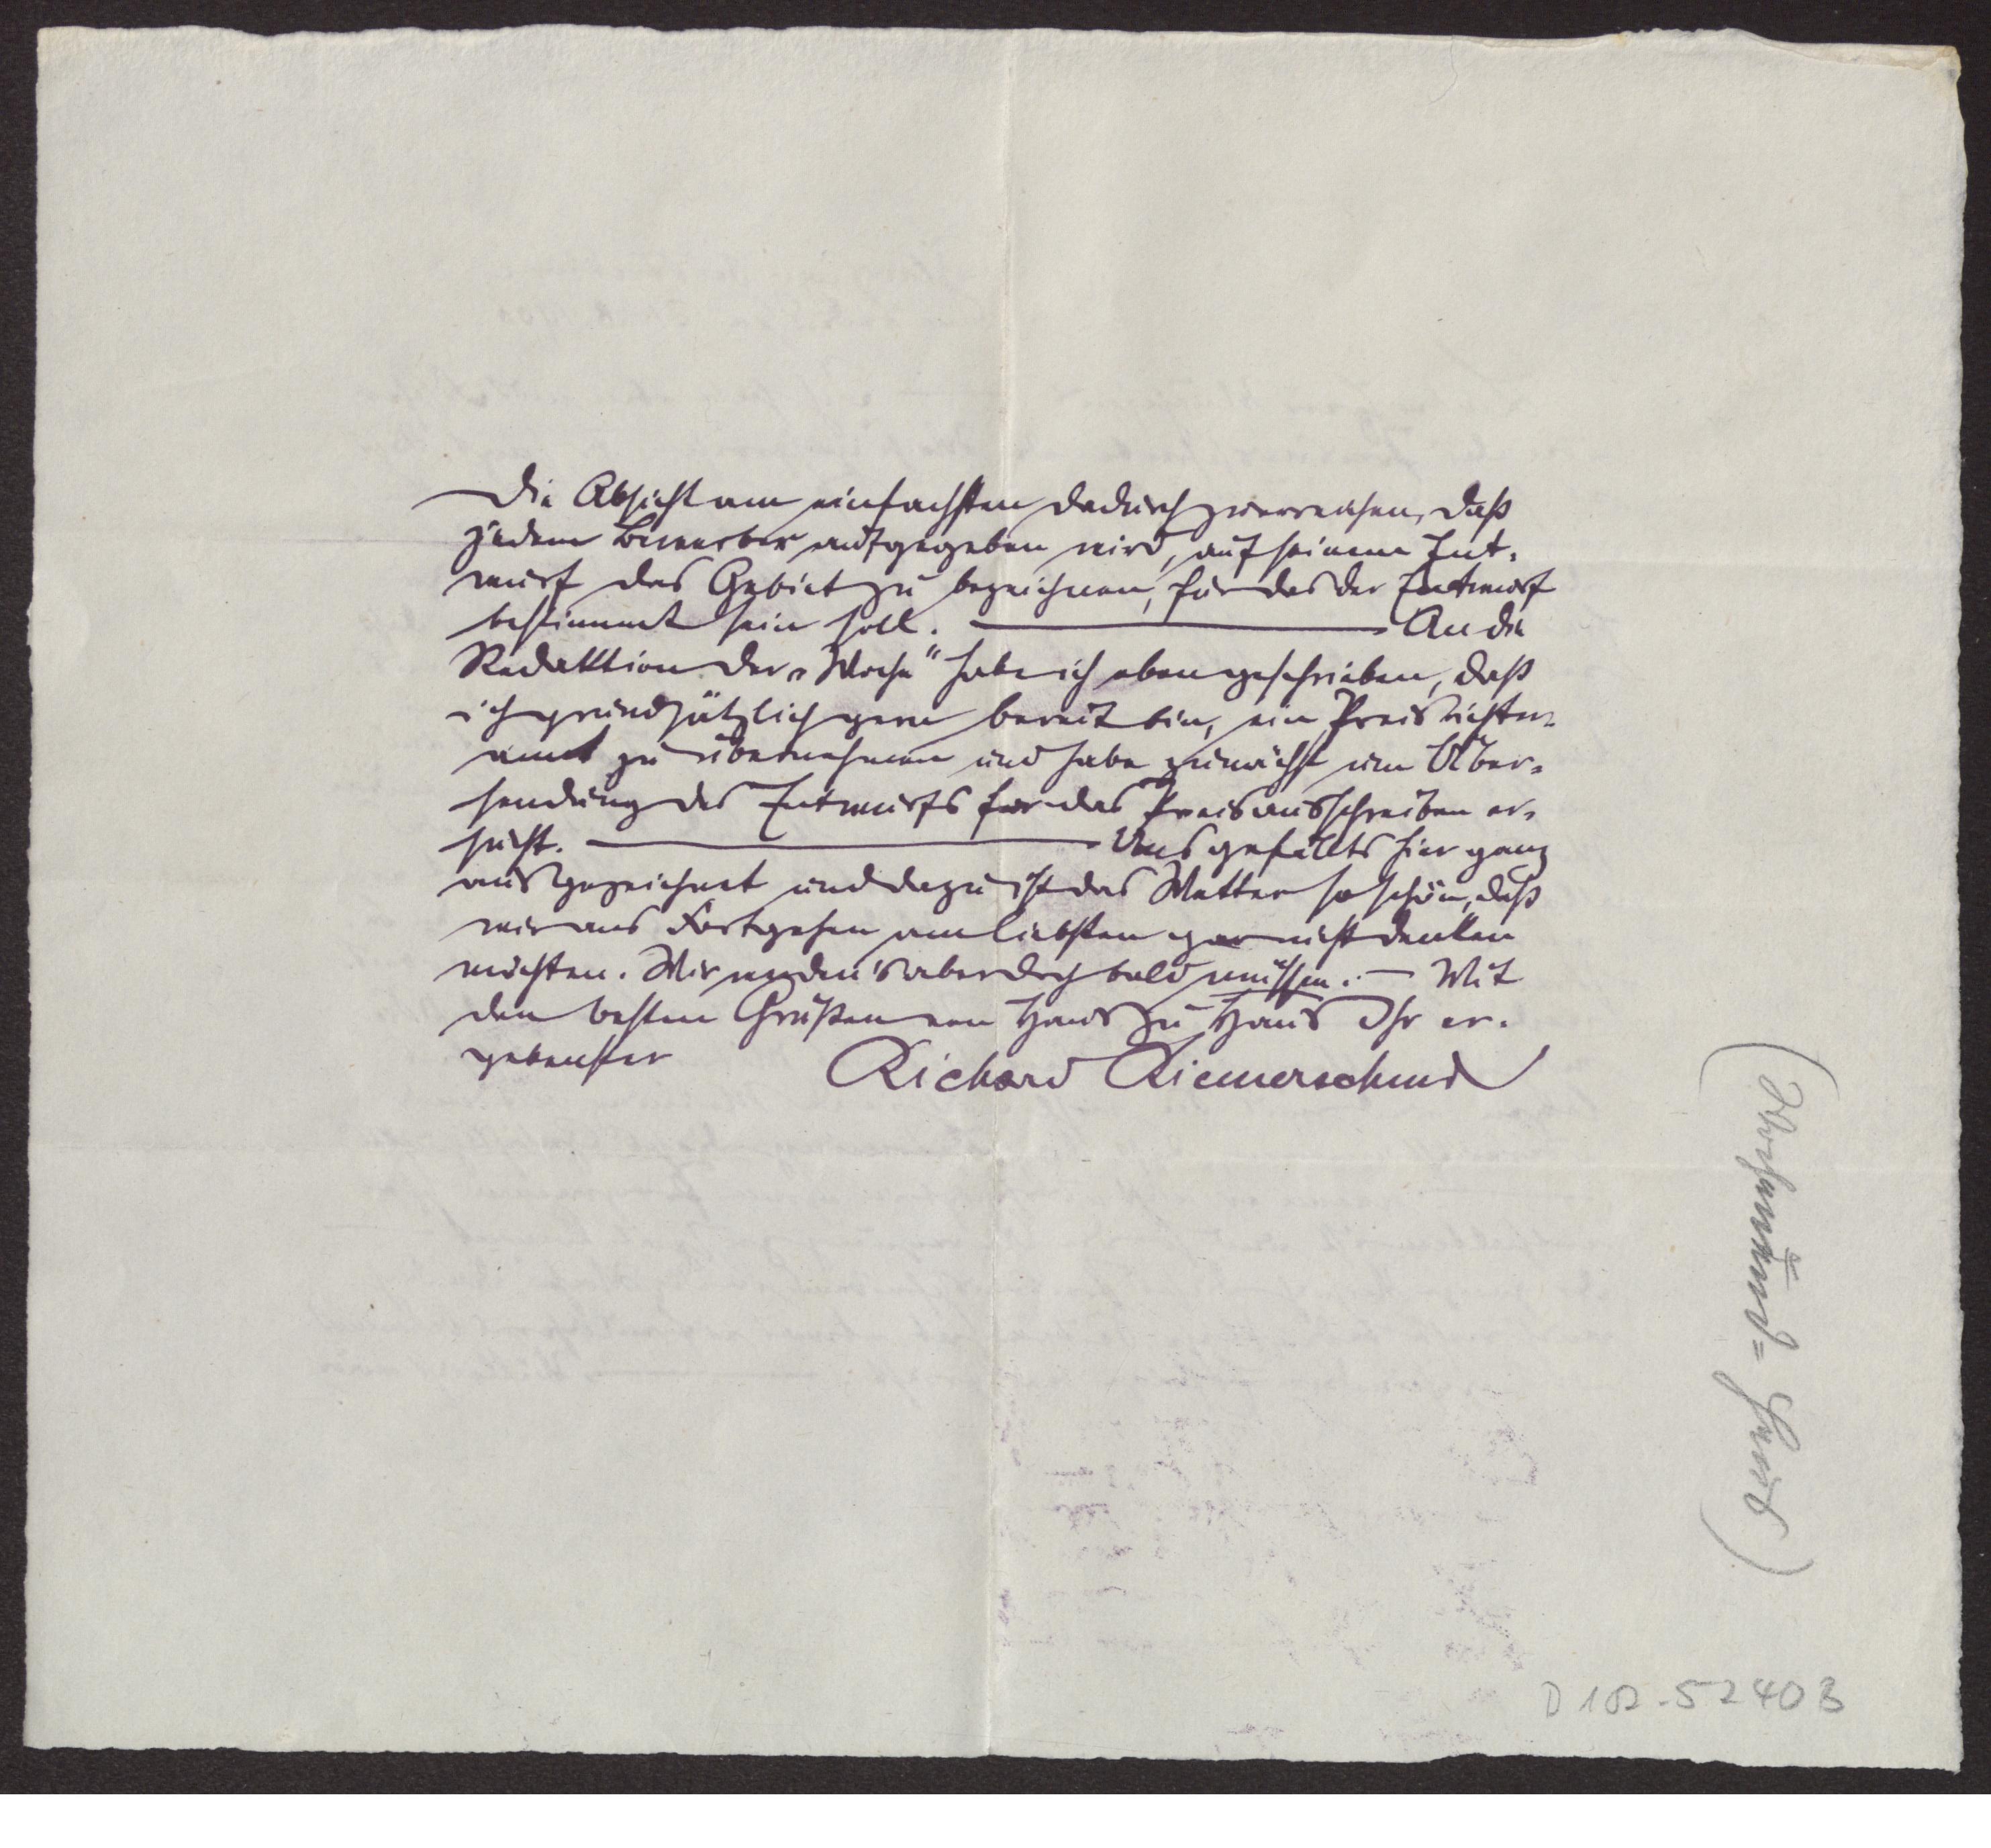 die Absicht am einfachsten dadurch zu erreichen, daß
jedem Bewerber aufgegeben wird, auf seinem Ent-
wurf das Gebiet zu bezeichnen, für das der Entwurf
bestimmt sein soll. — An die
Redaktion der „Woche" habe ich eben geschrieben, daß
ich grundsätzlich gern bereit bin, ein Preisrichter-
amt zu übernehmen und habe zunächst um Über-
sendung des Entwurfs für das Preisausschreiben er-
sucht. — Uns gefällts hier ganz
ausgezeichnet und dazu ist das Wetter so schön, daß
wir ans Fortgehen am liebsten gar nicht denken
möchten. Wir werden's aber doch bald müssen. — Mit
den besten Grüßen von Haus zu Haus Ihr er-
gebenster Richard Riemerschmid
D 102-5240 B